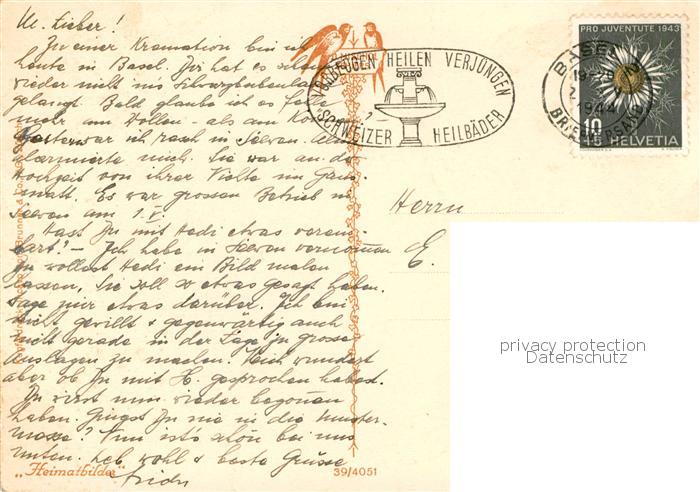 M. Lieber!
Zu einer Kremation bin ich
heute in Basel. Dzi hat es schon
wieder nicht ins Schwarzbubenland
gelangt. Bald glaube ich es fehle
mehr am Wollen - als am Können?
Gestern war ich rasch in Seewen. Alm
alarmierte mich. Sie war an der
Hochzeit von ihrer Nichte im Gäns-
matt. Es war grossen Betrieb in
Seewen am 1. V.
Hast Du mit Hedi etwas verein-
bart? - Ich habe in Seewen vernommen
Du wollest Hedi ein Bild malen
lassen, Sie soll so etwas gesagt haben.
Sage mir etwas darüber. Ich bin
nicht gewillt & gegenwärtig auch
nicht gerade in der Lage zu grosse
Auslagen zu machen. Mich wundert
aber ob Du mit H. gesprochen habest.
Du wirst nun wieder begonnen
haben. Gingst Du nie in die Muster-
messe? Nun ist's schön bei uns
unten. Leb wohl & beste Grüsse
Fridu
"Heimatbilder"
39/4051
VORBEUGEN HEILEN VERJÜNGEN
SCHWEIZER HEILBÄDER
BASEL
1944
BRIEFVERSAND
PRO JUVENTUTE 1943
10+5
HELVETIA
Herrn
E.
privacy protection
Datenschutz